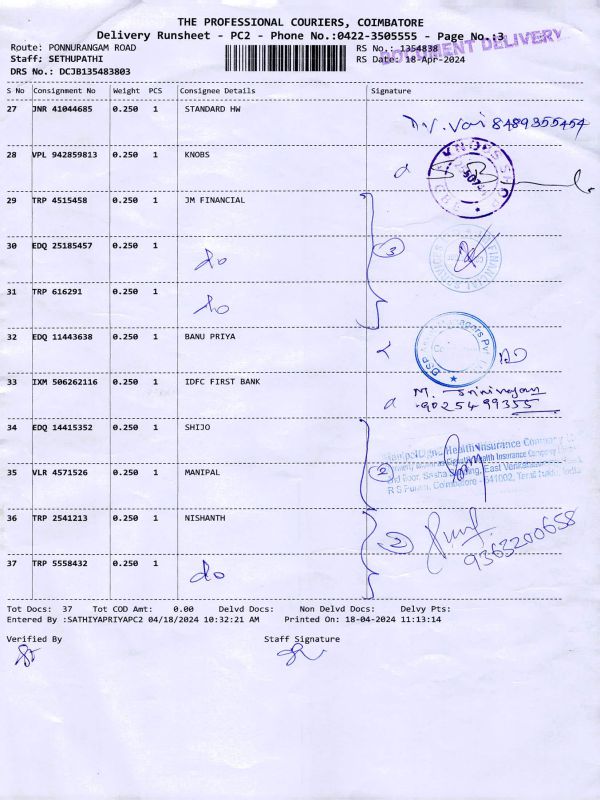 THE PROFESSIONAL COURIERS, COIMBATORE
Delivery Runsheet - PC2 - Phone No.:0422-3505555 - Page No.:3
DOCUMENT DELIVERY
Route: PONNURANGAM ROAD RS No.: 1354838
Staff: SETHUPATHI RS Date: 18-Apr-2024
DRS No.: DCJB135483803
S No Consignment No Weight PCS Consignee Details Signature
27 JNR 41044685 0.250 1 STANDARD HW
8489355454
28 VPL 942859813 0.250 1 KNOBS
29 TRP 4515458 0.250 1 JM FINANCIAL
30 EDQ 25185457 0.250 1 do
3
31 TRP 616291 0.250 1 do
32 EDQ 11443638 0.250 1 BANU PRIYA
33 IXM 506262116 0.250 1 IDFC FIRST BANK
M. Srinivasan
9025499355
34 EDQ 14415352 0.250 1 SHIJO
ManipalCigna Health Insurance Company
R S Puram, Coimbatore - 641002, Tamil Nadu, India
35 VLR 4571526 0.250 1 MANIPAL
2
36 TRP 2541213 0.250 1 NISHANTH
2
9363200658
37 TRP 5558432 0.250 1 do
Tot Docs: 37 Tot COD Amt: 0.00 Delvd Docs: Non Delvd Docs: Delvy Pts:
Entered By :SATHIYAPRIYAPC2 04/18/2024 10:32:21 AM Printed On: 18-04-2024 11:13:14
Verified By Staff Signature